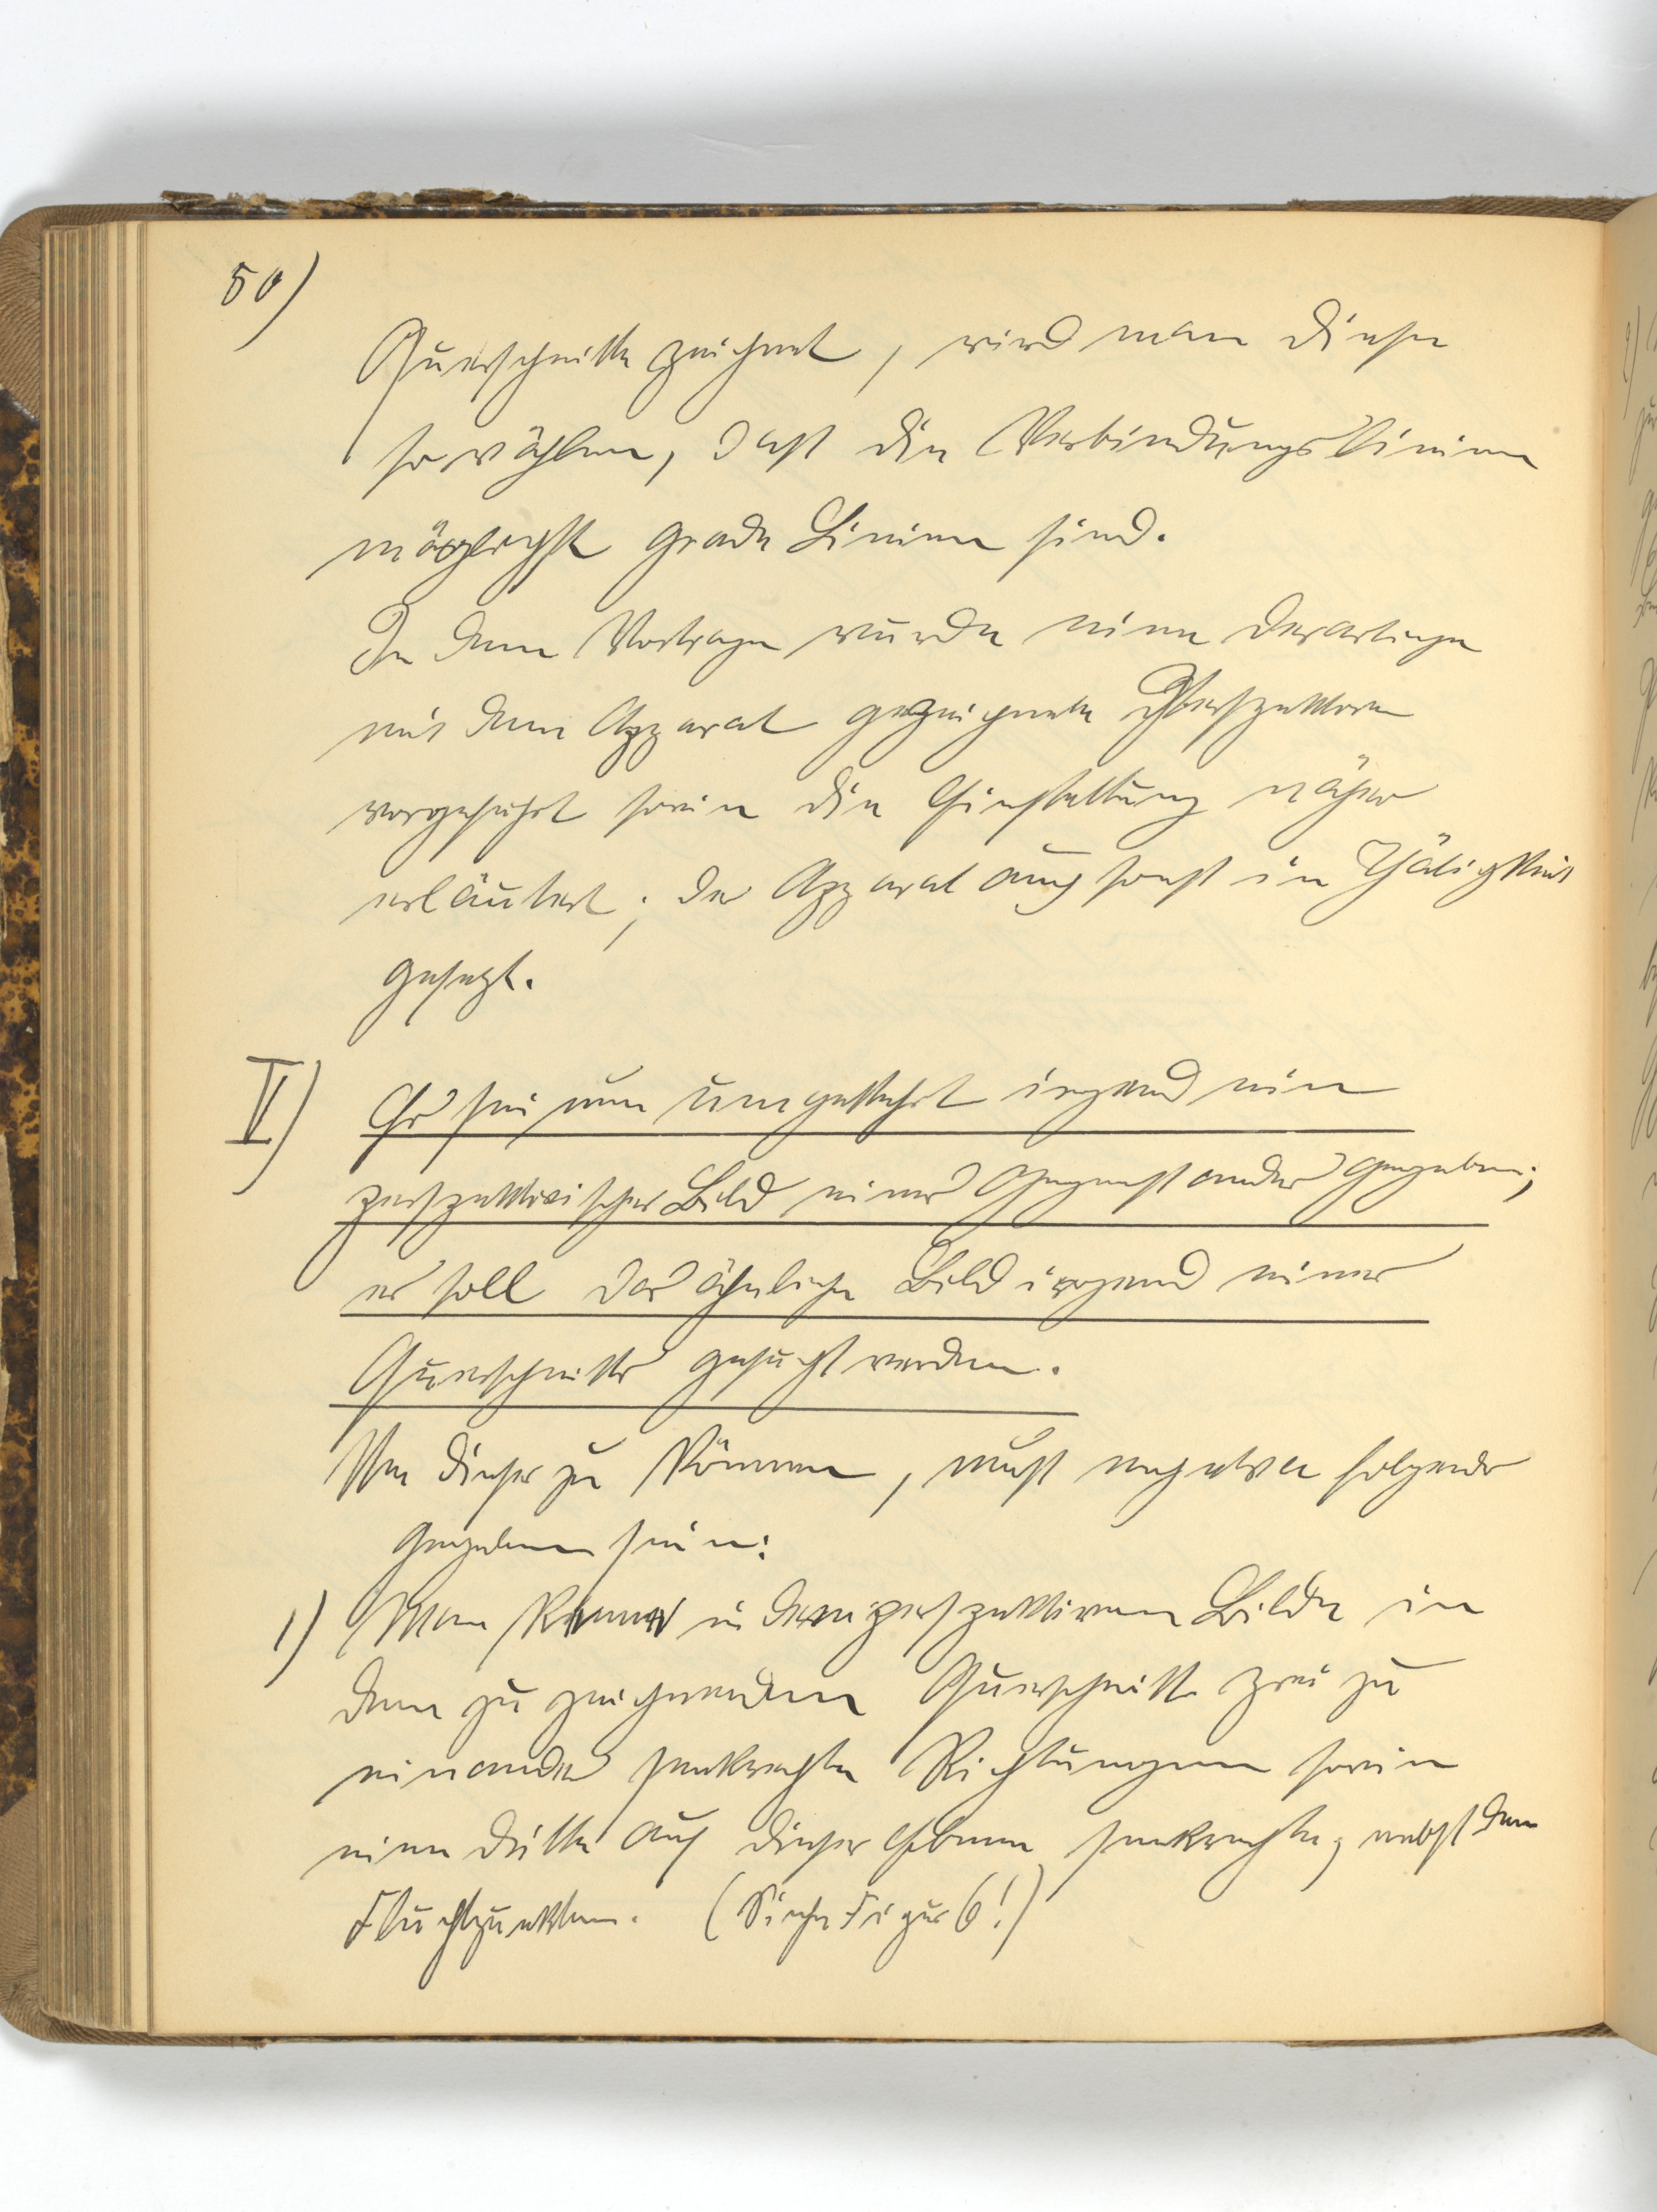 50)
Querschnitte zeichnet, wird man diese
so wählen, dass die Verbindungslinien
möglichst grade Linien sind.
In dem Vortrage wurde eine derartige
mit dem Apparat gezeichnete Perspektive
vorgeführt sowie die Einstellung näher
erläutert; der Apparat auch sonst in Thätigkeit
gesetzt.
II) Es sei nun umgekehrt irgend ein
perspektivisches Bild eines Gegenstandes gegeben;
es soll das ähnliche Bild irgend eines
Querschnitts gesucht werden.
Um dieses zu können, muss noch etwa folgendes
gegeben sein:
1) Man kenne in dem perspektiven Bilde in
dem zu zeichnenden Querschnitte zwei zu
einander senkrechte Richtungen sowie
eine dritte auf dieser Ebene senkrechte, nebst den
Fluchtpunkten. (Siehe Figur 6!)